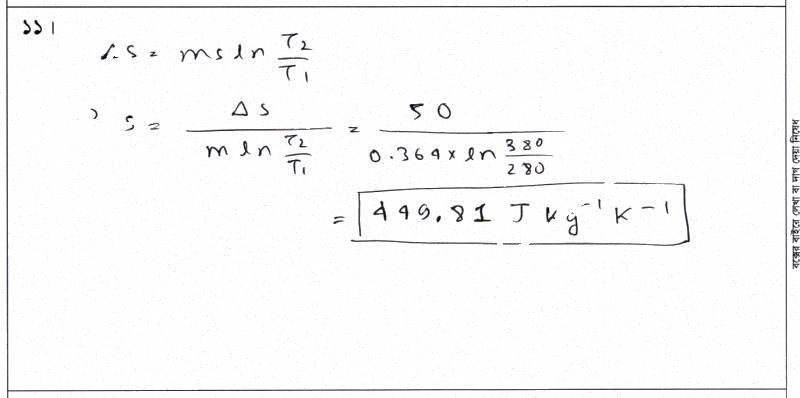 ১১।
ΔS = ms ln T2/T1
s = ΔS / (m ln T2/T1) = 50 / (0.364 × ln 380/280)
= 449.81 J kg⁻¹ K⁻¹
বক্সের বাইরে লেখা বা দাগ দেয়া নিষেধ